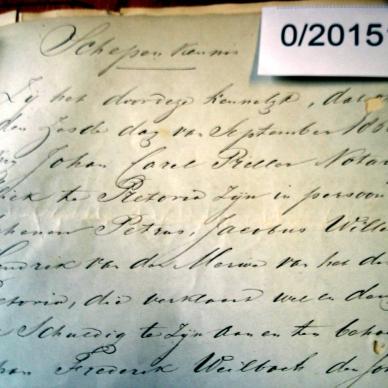 0/2015
Schepen Kennis
Zij het door deze kennelyk, dat
den zesde dag van September 186
Johan Carel Preller Notar
liek te Pretoria zyn in persoon
schenen Petrus, Jacobus Wille
Hendrik van der Merwe van het d
retoria, die verklaart wel en deug
Schuldig te zyn aan en ten beho
Frederik Weilbach den